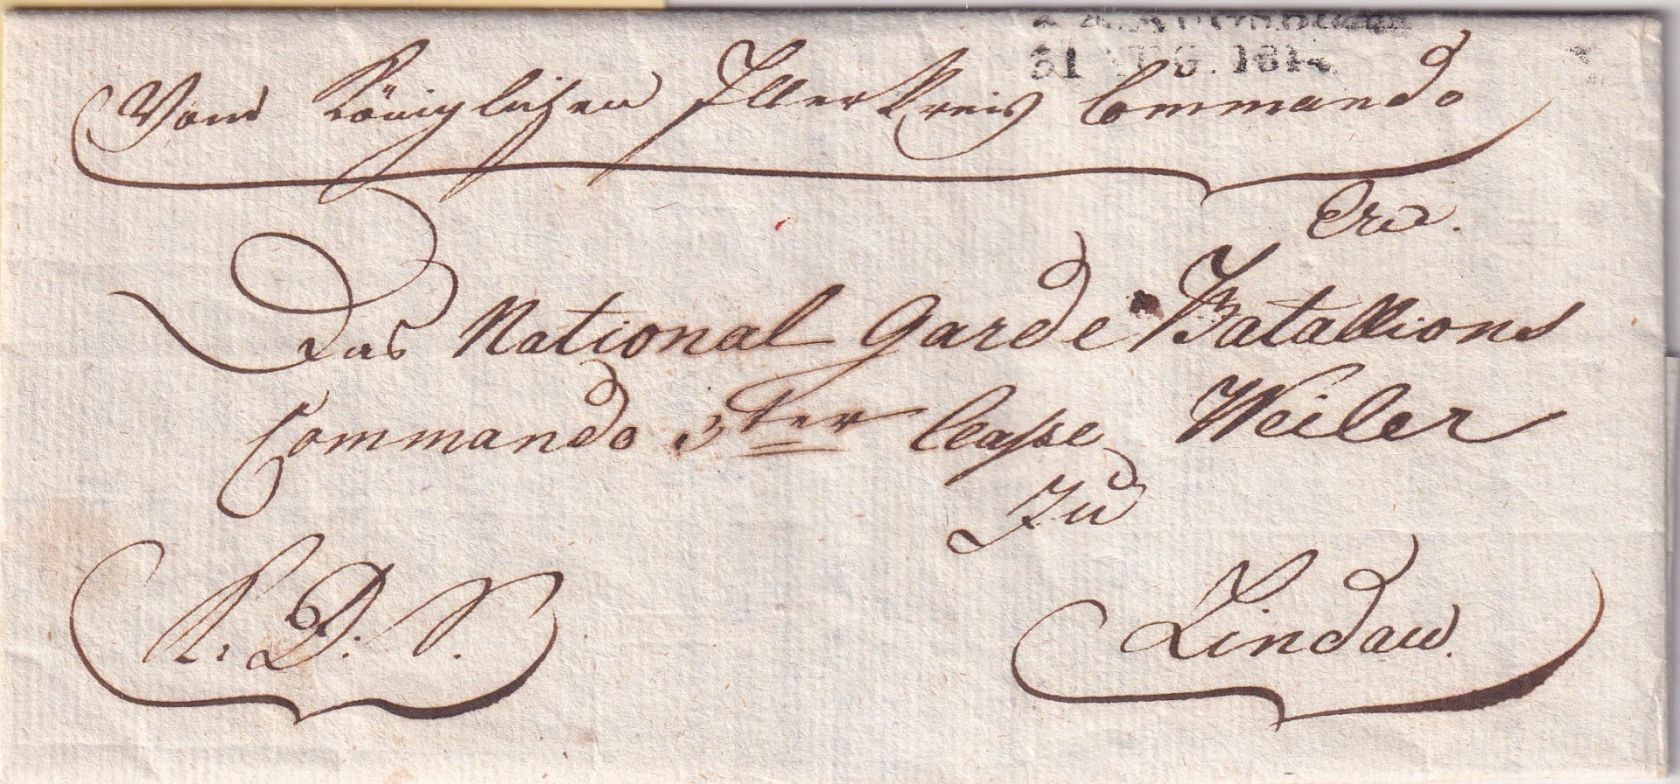 31 AUG. 1814
Vom Königlichen Iller Kreis Commando
An
Das National Garde Batallions
Commando 3ter Classe Weiler
Zu
Lindau.
K. D. S.